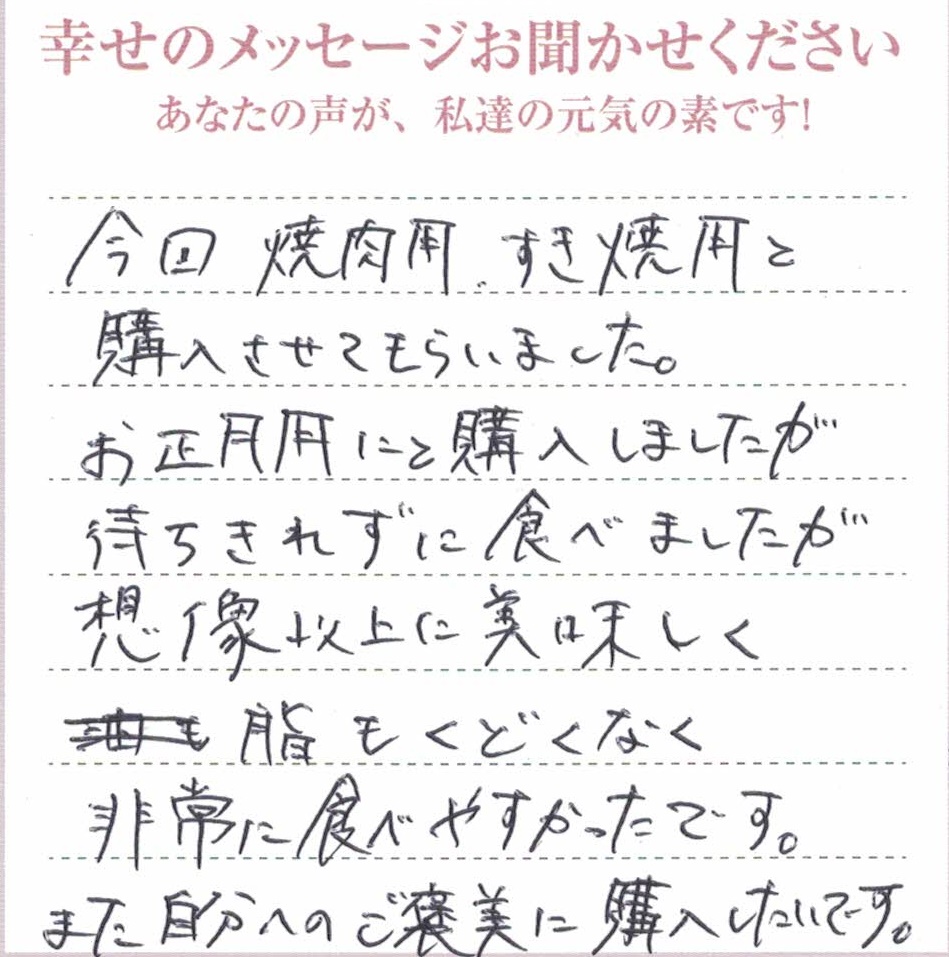 幸せのメッセージお聞かせください
あなたの声が、私達の元気の素です!
今回 焼肉用、すき焼用と
購入させてもらいました。
お正月用にと購入しましたが
待ちきれずに食べましたが
想像以上に美味しく
脂もくどくなく
非常に食べやすかったです。
また自分へのご褒美に購入したいです。